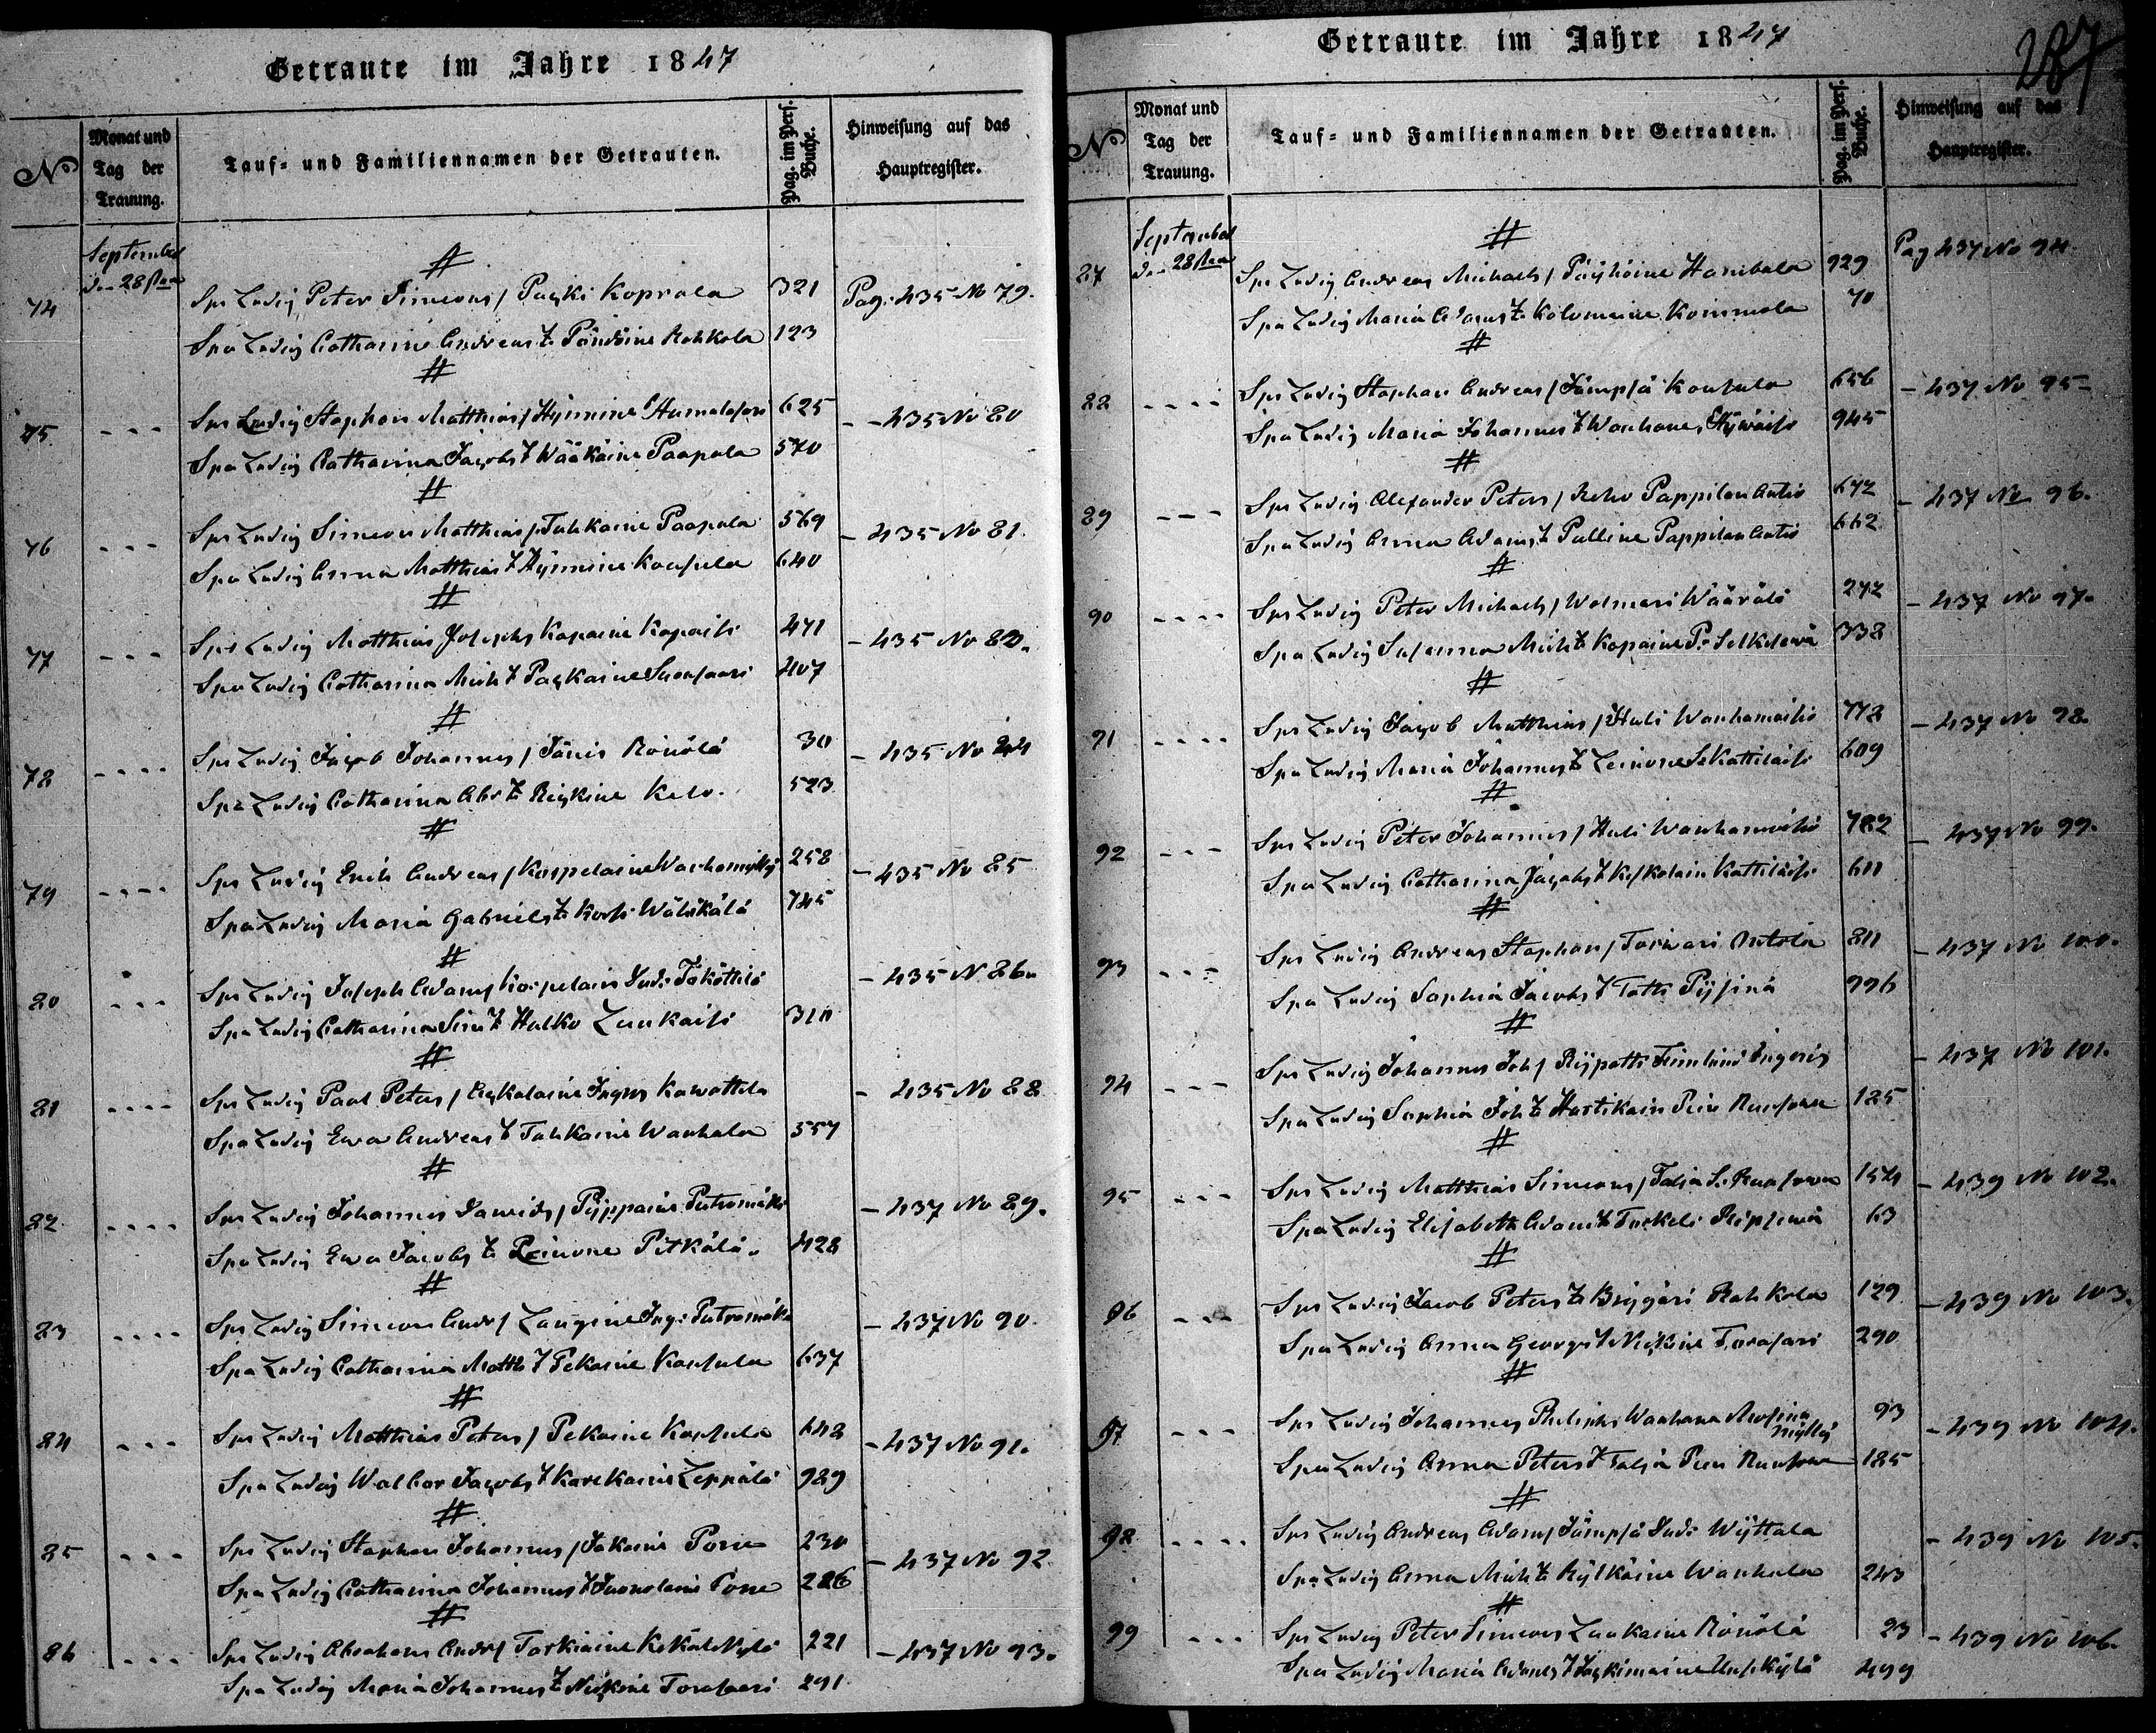 Getraute im Jahre 1847
No
Monat und Tag der Trauung.
Tauf- und Familiennamen der Getrauten.
Pag. im Pers. Buche.
Hinweisung auf das Hauptregister.
September
den 28sten
74 Sps Ledig Peter Simeons / Paski Koprala 321 Pag. 435 No 79.
Spa Ledig Catharina Andreas t. Pöndöine Rohkola 123
75 - - - Sps Ledig Stephan Matthias / Hynnine Humalasari 625 - 435 No 80
Spa Ledig Catharina Jacobs t. Wääkäine Paapala 570
76 - - - Sps Ledig Simeon Matthias / Tuhkaine Paapala 569 - 435 No 81.
Spa Ledig Anna Matthias t. Hynnine Kousula 640
77 - - - Sps Ledig Matthias Josephs Kapaine Kapaisi 471 - 435 No 82.
Spa Ledig Catharina Mich t. Paskaine Suosaari 407
78 - - - - Sps Ledig Jacob Johannes / Jänis Rönölä 30 - 435 No 84
Spa Ledig Catharina Abr t. Reiskine Kelo. 523
79 - - - - Sps Ledig Erich Andreas / Karpelaine Wanhamylly 258 - 435 No 85
Spa Ledig Maria Gabriels t. Korsi Wälikälä 745
80 - - - Sps Ledig Joseph Adams Karpelain 435 No 86.
Spa Ledig Catharina Sim t. Halko Laukaisi 310
81 - - - - Sps Ledig Paul Peters / Kawattila - 435 No 88
Spa Ledig Ewa Andreas t. Tuhkaine Wanhala 557
82 - - - - Sps Ledig Johannes Dawids / Pyppäine Putromäki - 437 No 89.
Spa Ledig Ewa Jacobs t. Reinone Pitkälä. 428
83 - - - - Sps Ledig Simeon Andr / Putromäki - 437 No 90.
Spa Ledig Catharina Matth t. Pekaine Kousula 637
84 - - - Sps Ledig Matthias Peters / Pekaine Kousula 642 - 437 No 91.
Spa Ledig Walbor Jacobs t. Karekaine Leppälä 989
85 - - - Sps Ledig Stephan Johannes / Jakaine Pone 230 - 437 No 92
Spa Ledig Catharina Johannes t. Suonolaine Pone 226
86 - - - Sps Ledig Abraham Andr / Torkiaine Kekälekylä 221 - 437 No 93.
Spa Ledig Maria Johannes t. Niskine Torasaari 291
Getraute im Jahre 1847
287
No
Monat und Tag der Trauung.
Tauf- und Familiennamen der Getrauten.
Pag. im Pers. Buche.
Hinweisung auf das Hauptregister.
September
den 28sten
87 Sps Ledig Andreas Michaels / Pöyhöine Hanibala 929 Pag 437 No 94.
Spa Ledig Maria Adams t. Kolomaine Koinmola 70
88 - - - - Sps Ledig Stephan Andreas / Jämpsä Kousula 656 - 437 No 95
Spa Ledig Maria Johannes t. Wanhane Hywäisi 945
89 - - - Sps Ledig Alexander Peters / Reho Pappilan Autio 672 - 437 No 96.
Spa Ledig Anna Adams t. Pulline Pappilan Autio 662
90 - - - - Sps Ledig Peter Michaels / Wolmari Wäärälä 272 - 437 No 97.
Spa Ledig Susanna Mich t. Kapaine P. Selkelewä 338
91 - - - - Sps Ledig Jacob Matthias / Huli Wanhamaisi 772 - 437 No 98.
Spa Ledig Maria Johannes t. Leinone S. Kattiläisi 609
92 - - - Sps Ledig Peter Johannes / Huli Wanhamaisi 782 - 437 No 99.
Spa Ledig Catharina Jacobs t. Koskolain Kattiläisi 611
93 - - - Sps Ledig Andreas Stephan / Torwari Antola 811 - 437 No 100.
Spa Ledig Sophia Jacobs t. Totti Pysinä 996
94 - - - Sps Ledig Johannes Joh / Rypotti - 437 No 101.
Spa Ledig Sophia Joh t. Hartikain Pien Ruosowa 185
95 - - - Sps Ledig Matthias Simeons / Talja S. Ruosowa 154 - 439 No 102.
Spa Ledig Elisabeth Adam t. Torkeli 63
96 - - - Sps Ledig Jacob Peters Bryggäri Rohkola 129 - 439 No 103.
Spa Ledig Anna Georgs t. Niskine Torasari 290
97 - - - Sps Ledig Johannes Philipps Wanhane Musinamylly 93 - 439 No 104.
Spa Ledig Anna Peters t. Talja Pien Ruosowa 185
98 - - - - Sps Ledig Andreas Adams Jämpsä Wyttala - 439 No 105.
Spa Ledig Anna Mich t. Rylkäine Wanhala 243
99 - - - Sps Ledig Peter Simeons Laukaine Rönölä 23 - 439 No 106.
Spa Ledig Maria Adams t. Uusikylä 499